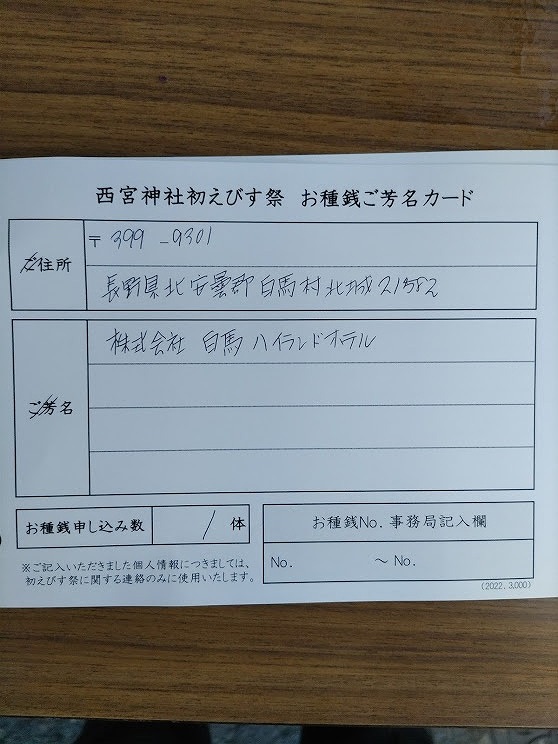 西宮神社初えびす祭 お種銭ご芳名カード
ご住所
〒 399-9301
長野県北安曇郡白馬村北城21582
ご芳名
株式会社 白馬ハイランドホテル
お種銭申し込み数 1 体
お種銭No. 事務局記入欄
No. ～ No.
※ご記入いただきました個人情報につきましては、
初えびす祭に関する連絡のみに使用いたします。
(2022. 3,000)